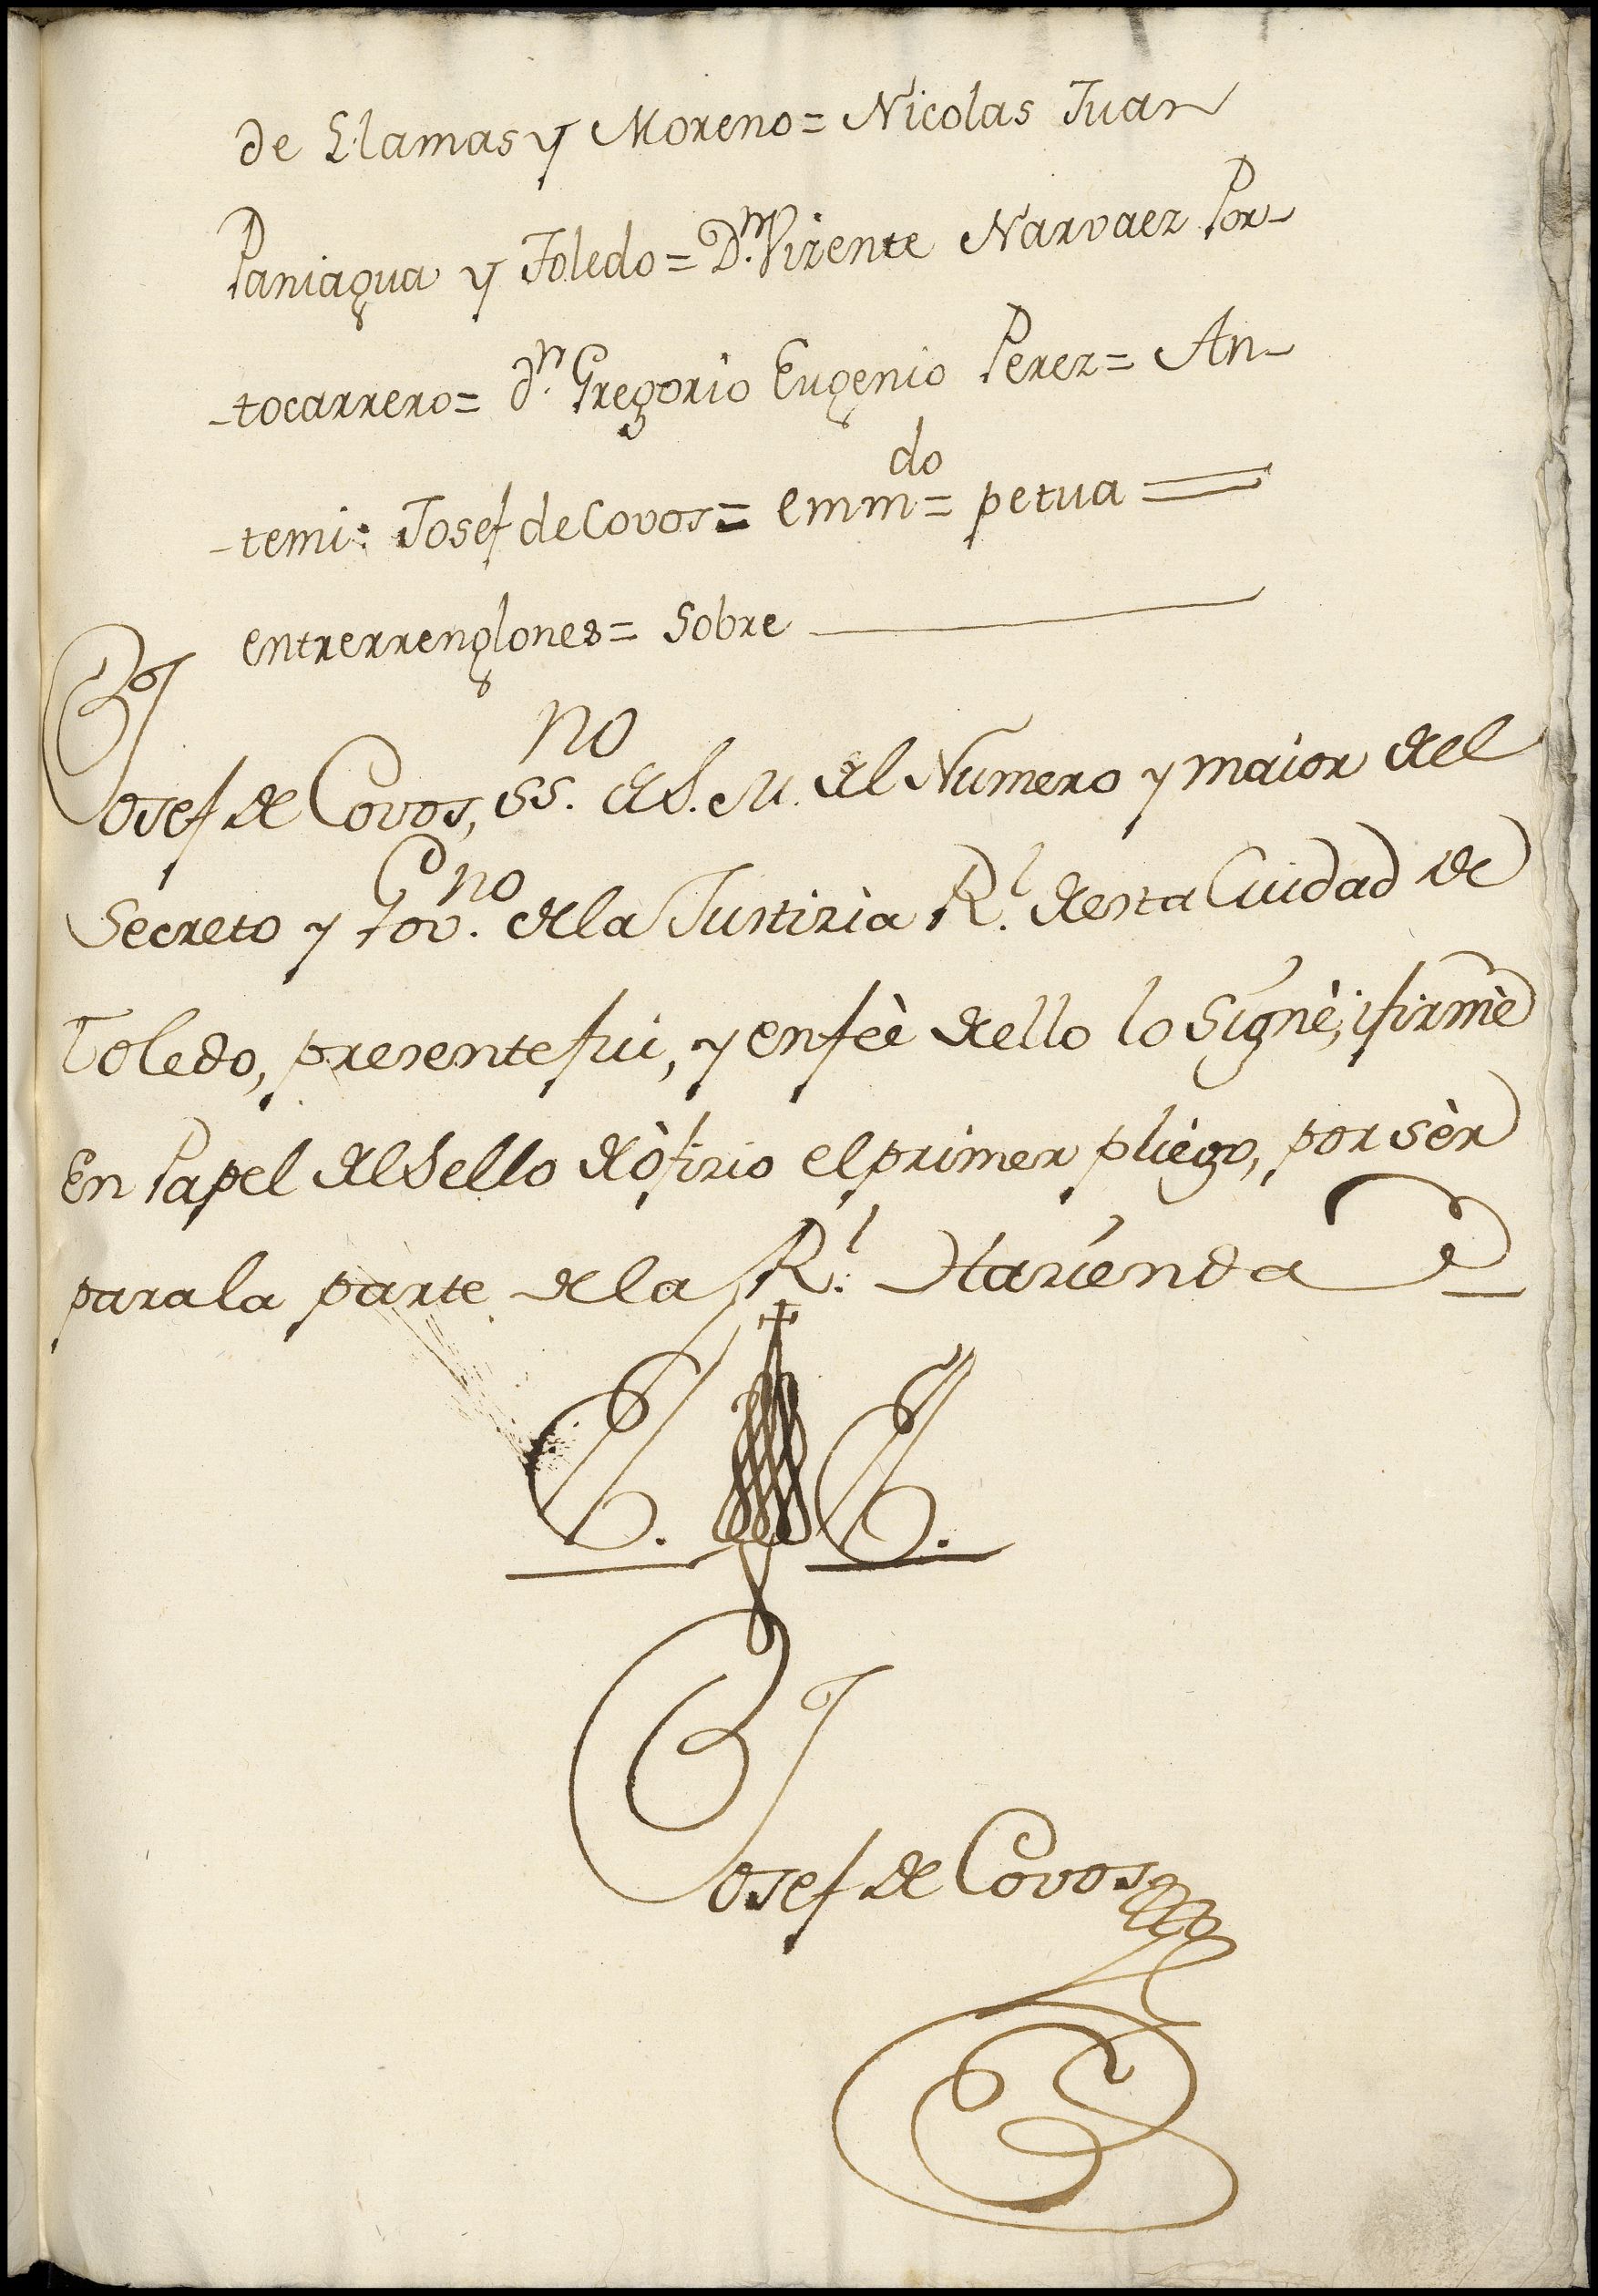 de Llamas y Moreno= Nicolas Juan
Paniagua y Toledo= D.n Vizente Narvaez Por-
-tocarrero= d.n Gregorio Eugenio Perez= An-
-temi: Josef de Covos= emm.do= petua =
entrerrenglones= Sobre
Josef de Covos, ss.no de S. M. del Numero y maior del
Secreto y Gov.no de la Justizia R.l desta Ciudad de
Toledo, presente fui, y en feè dello lo Signè, i firmè
En Papel del Sello de òfizio el primer pliego, por sèr
para la parte de la R.l Hazienda
Josef de Covos